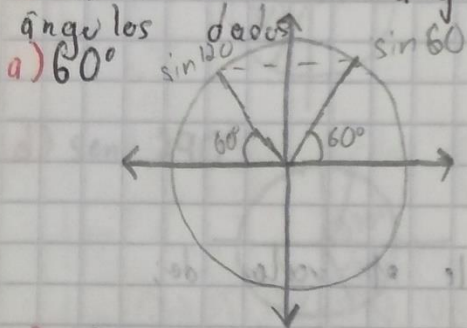 ángulos dados
a) 60°
sin 120
sin 60
60°
60°